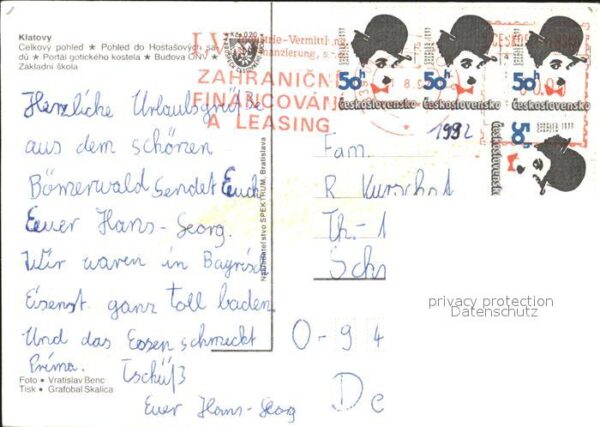 Klatovy
Celkový pohled ★ Pohled do Hostašových sa-
dů ★ Portál gotického kostela ★ Budova ONV ★
Základní škola
Kčs 0,20
I.V.
ZAHRANIČNÍ
FINANCOVÁNÍ
A LEASING
50h
Československo
50h
Československo
50h
Československo
50h
Československo
1992
Herzliche Urlaubsgrüße
aus dem schönen
Bömerwald sendet Euch
Euer Hans-Georg.
Wir waren in Bayrisch
Eisenst. ganz toll baden
Und das Essen schmeckt
Prima. Tschüß
Euer Hans-Georg
Nakladateľstvo SPEKTRUM, Bratislava
Fam.
R Kurschat
Th.-1
Sch
O-94
De
privacy protection
Datenschutz
Foto • Vratislav Benc
Tisk • Grafobal Skalica